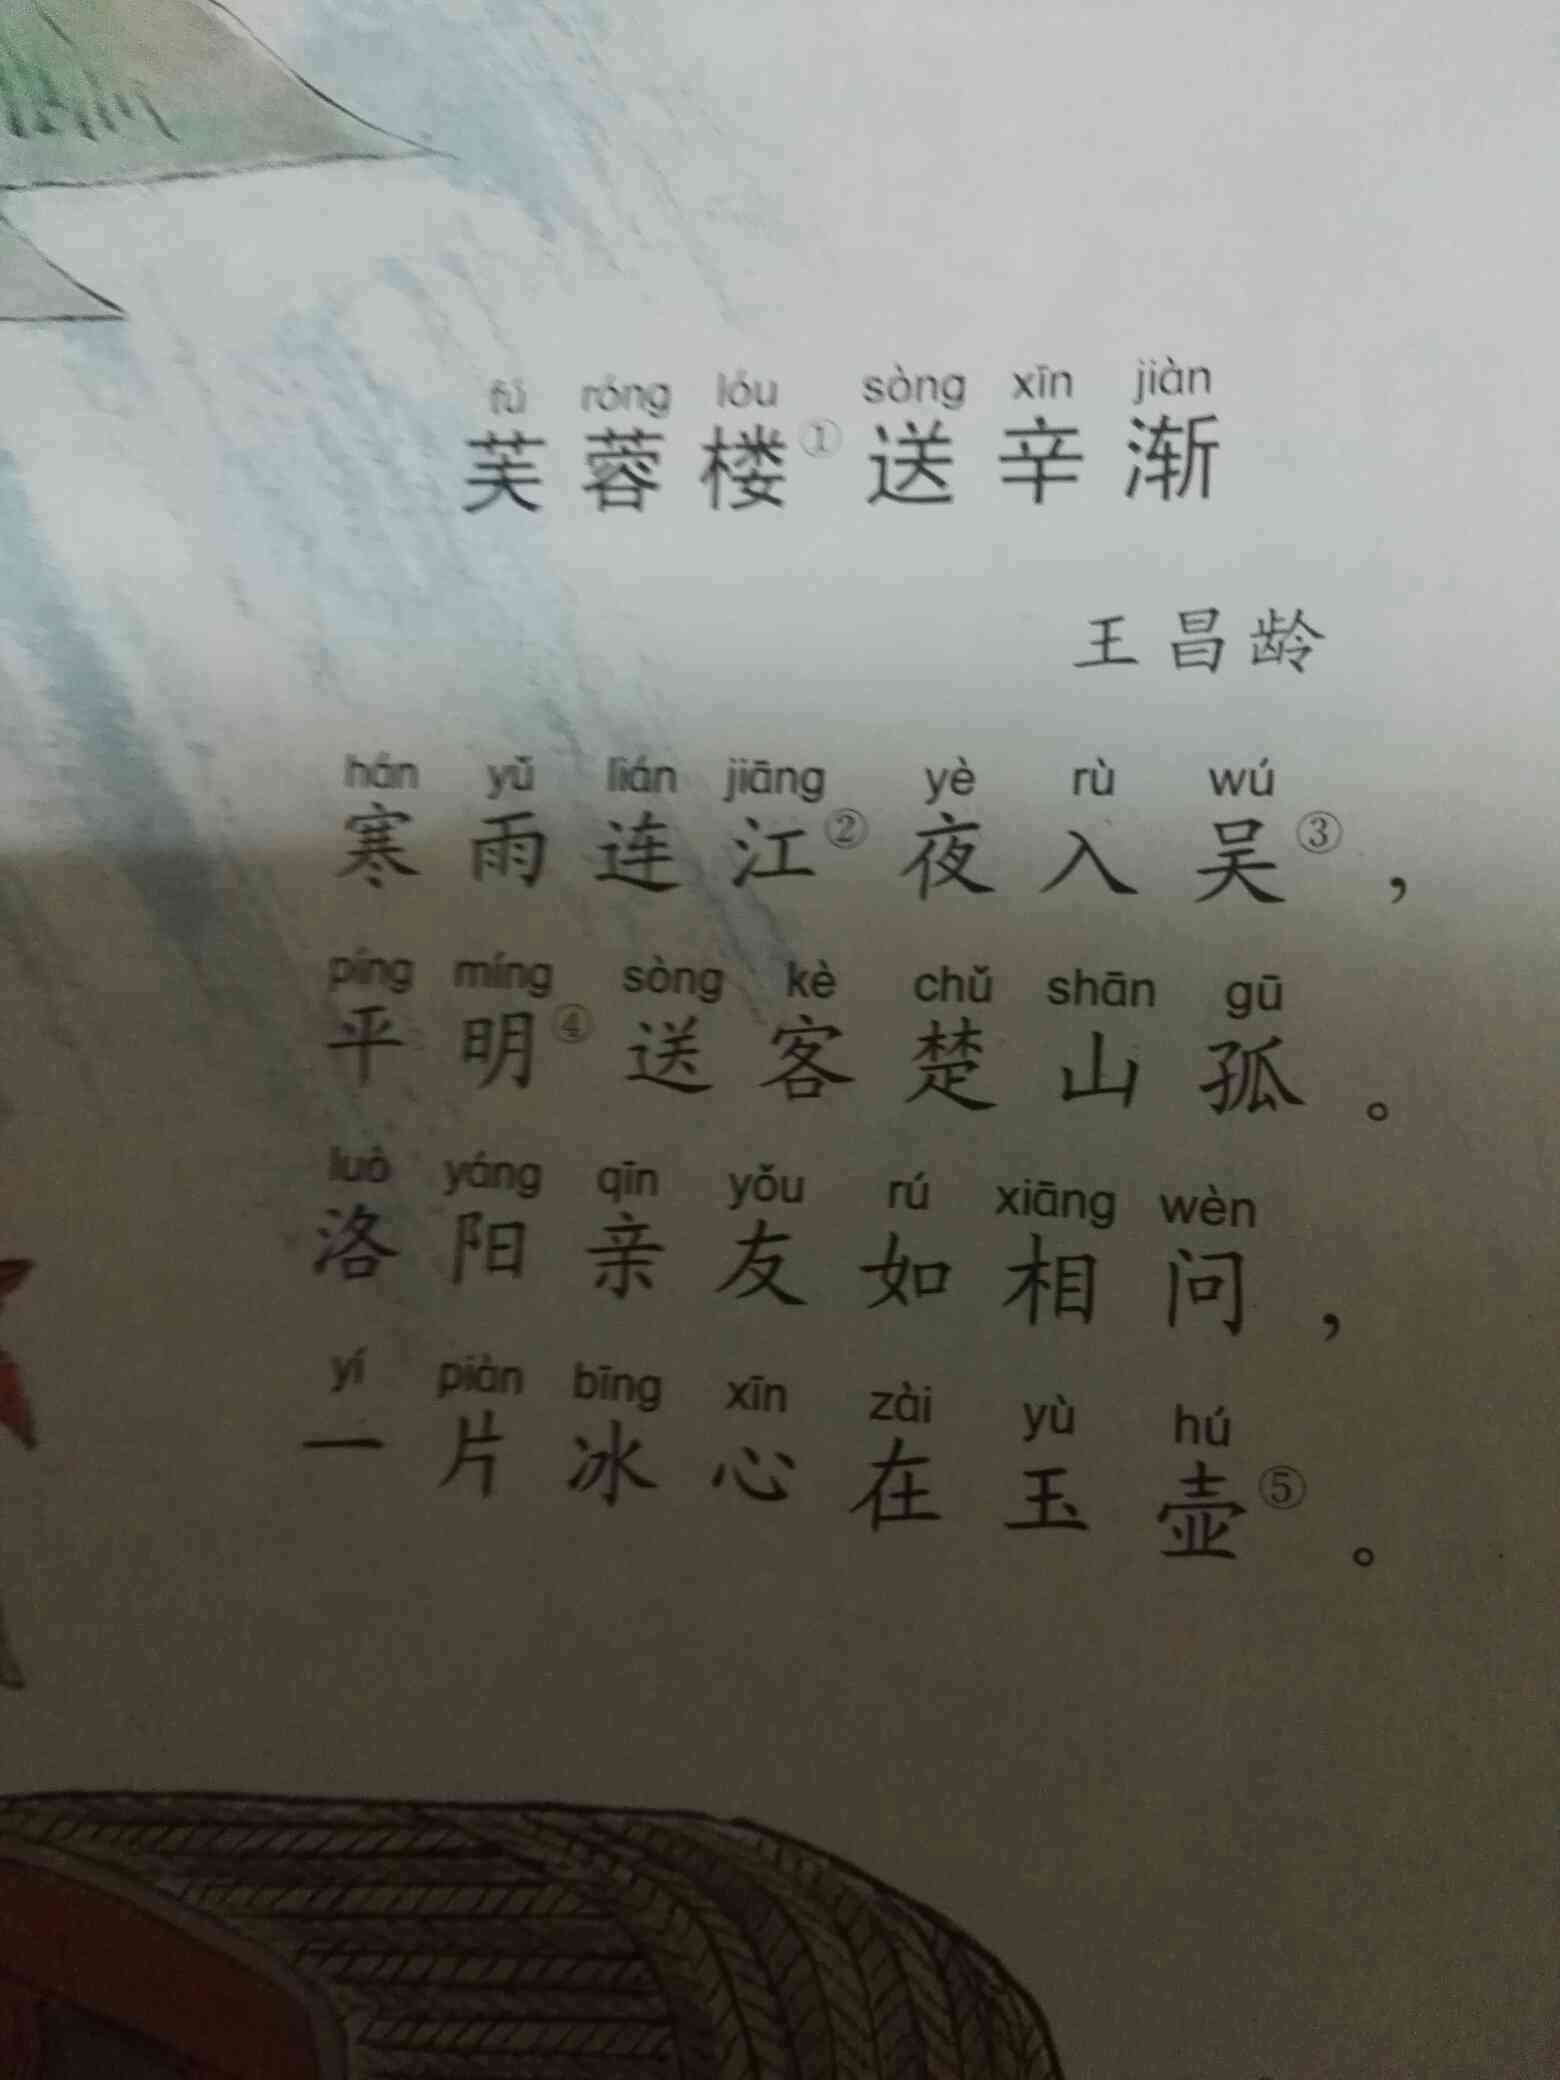 fú róng lóu sòng xīn jiàn
芙蓉楼①送辛渐
王昌龄
hán yǔ lián jiāng yè rù wú
寒雨连江②夜入吴③，
píng míng sòng kè chǔ shān gū
平明④送客楚山孤。
luò yáng qīn yǒu rú xiāng wèn
洛阳亲友如相问，
yí piàn bīng xīn zài yù hú
一片冰心在玉壶⑤。